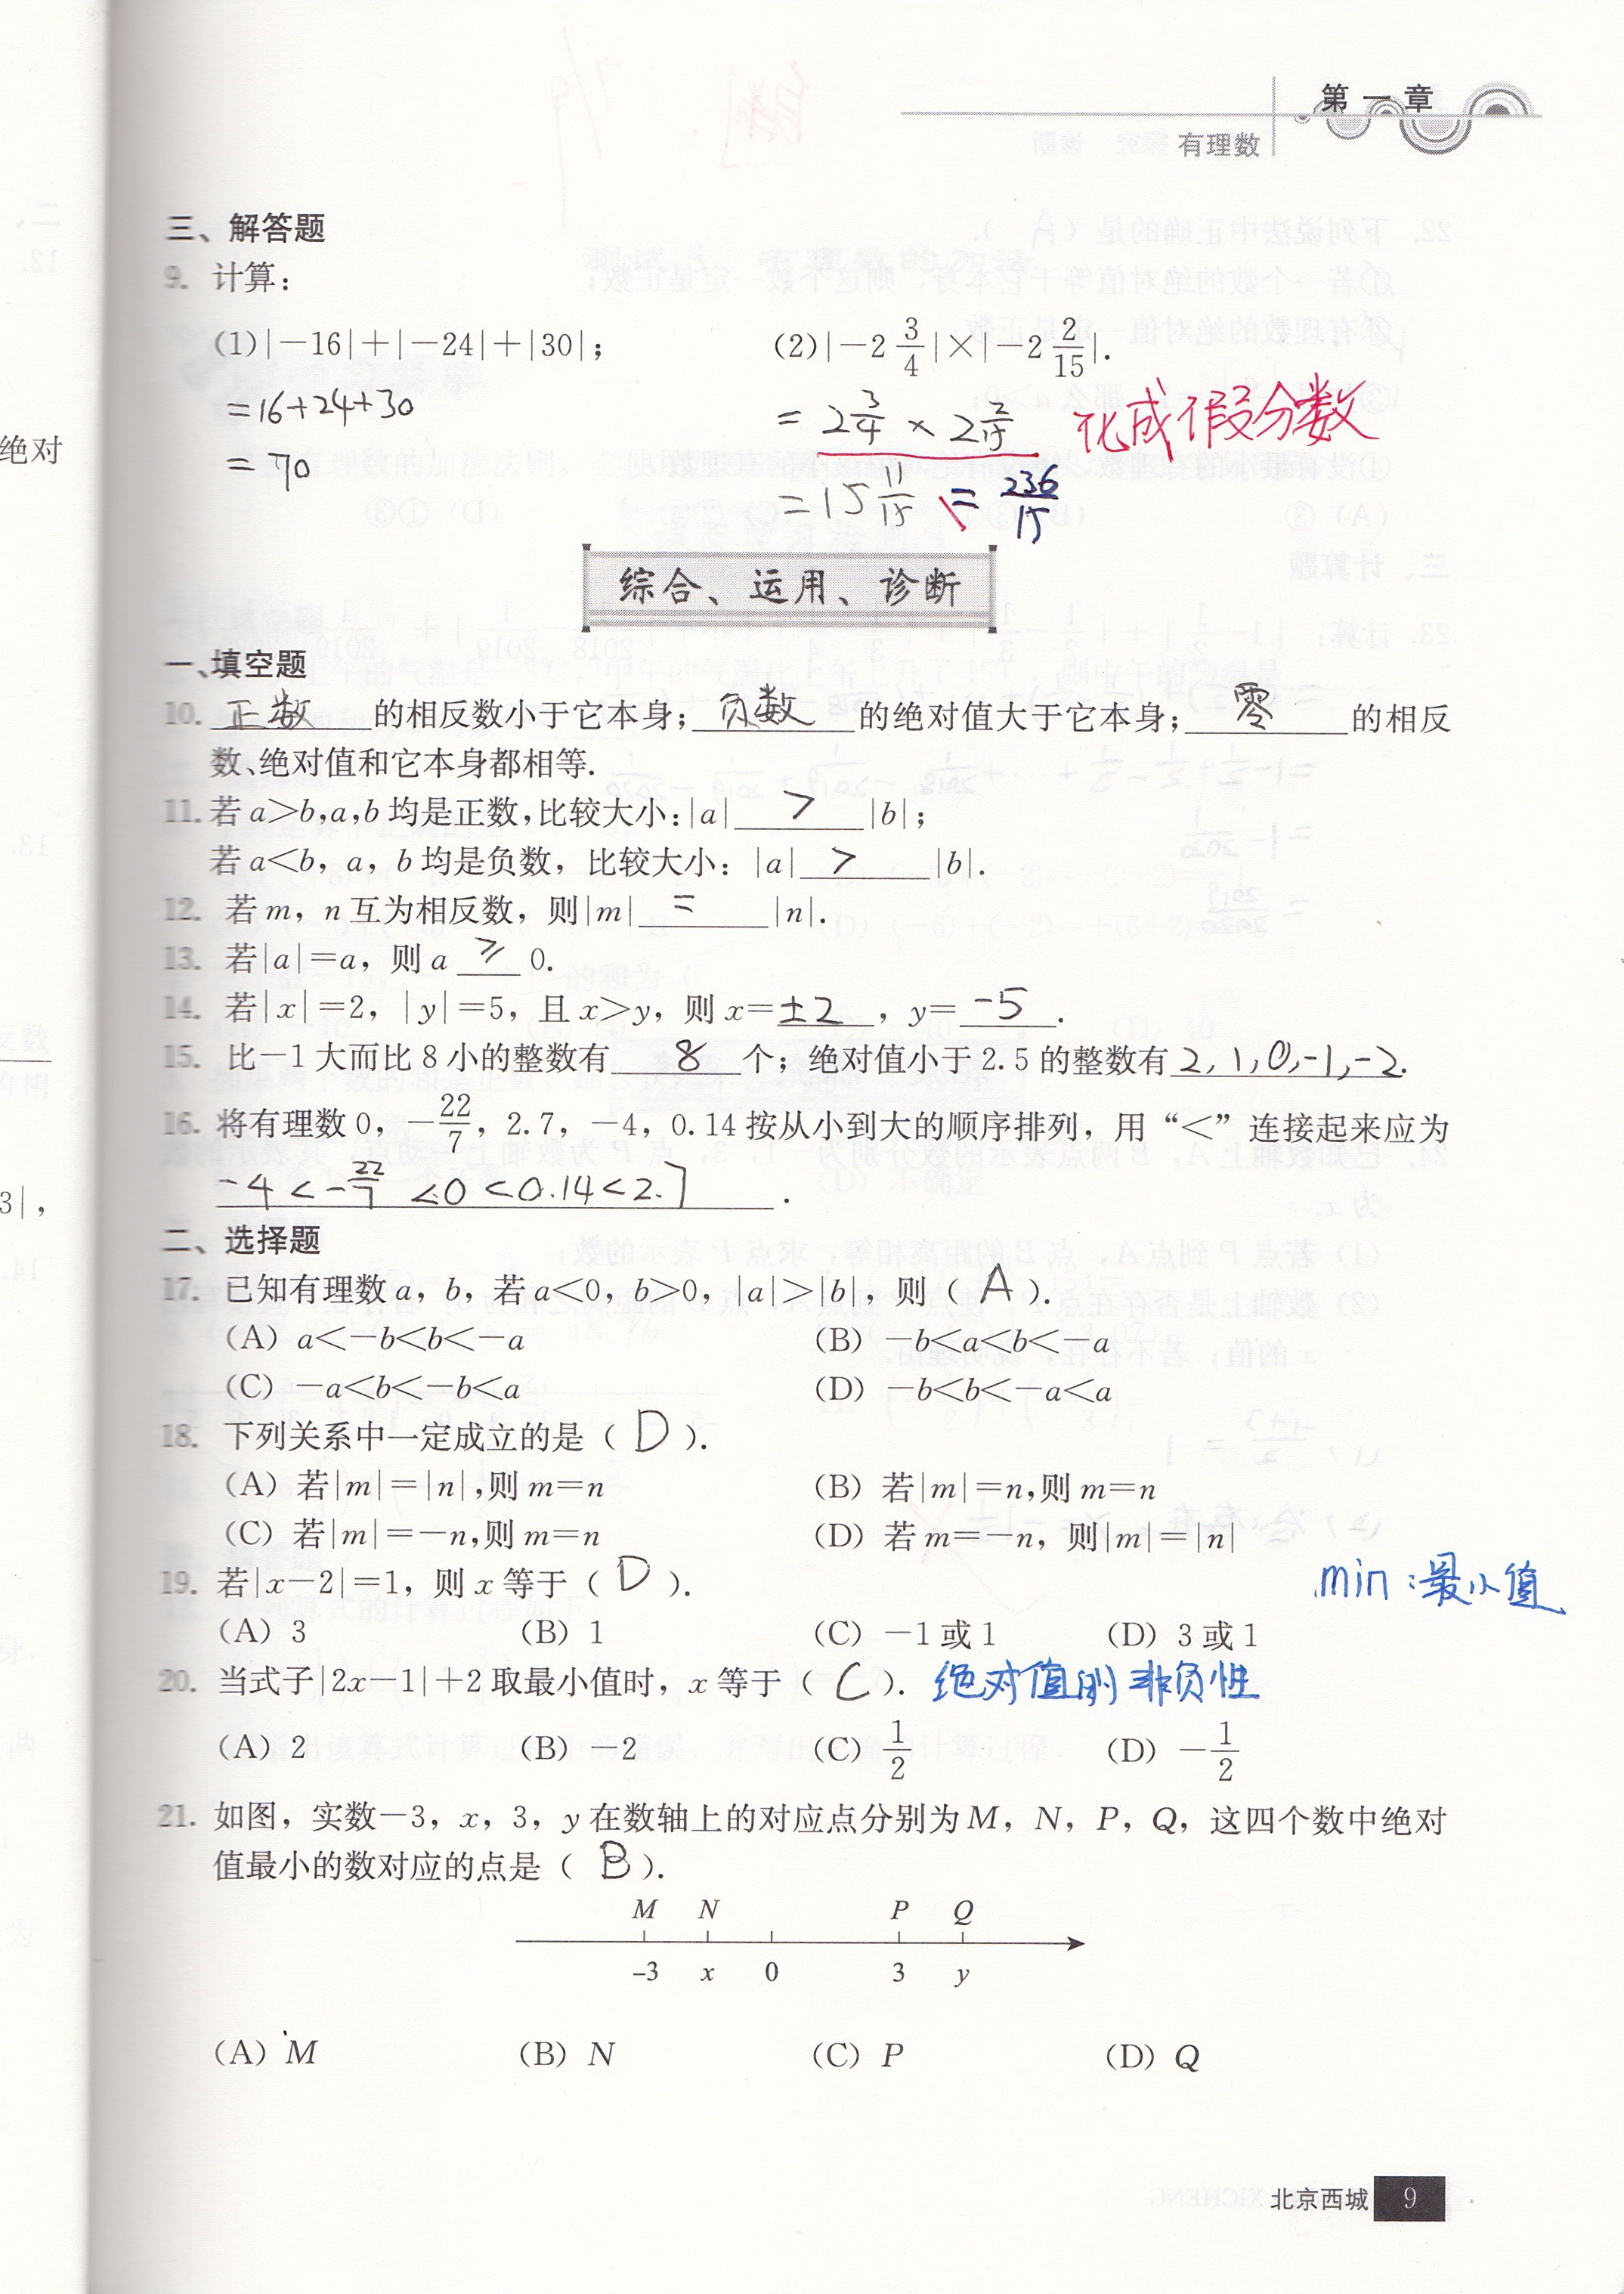 第一章
有理数
三、解答题
9. 计算:
(1)|-16|+|-24|+|30|;
(2)|-2 3/4|×|-2 2/15|.
=16+24+30
= 2 3/4 × 2 2/15 化成假分数
= 70
= 15 11/15 = 236/15
综合、运用、诊断
一、填空题
10. 正数 的相反数小于它本身; 负数 的绝对值大于它本身; 零 的相反
数、绝对值和它本身都相等.
11. 若a>b,a,b均是正数,比较大小:|a| > |b|;
若a<b, a, b均是负数, 比较大小: |a| > |b|.
12. 若m, n互为相反数, 则|m| = |n|.
13. 若|a|=a, 则a ≥ 0.
14. 若|x|=2, |y|=5, 且x>y, 则x=±2, y=-5.
15. 比-1大而比8小的整数有 8 个; 绝对值小于2.5的整数有 2, 1, 0, -1, -2.
16. 将有理数0, -22/7, 2.7, -4, 0.14按从小到大的顺序排列, 用“<”连接起来应为
-4 < -22/7 < 0 < 0.14 < 2.7 .
二、选择题
17. 已知有理数a, b, 若a<0, b>0, |a|>|b|, 则( A ).
(A) a<-b<b<-a (B) -b<a<b<-a
(C) -a<b<-b<a (D) -b<b<-a<a
18. 下列关系中一定成立的是( D ).
(A) 若|m|=|n|,则m=n (B) 若|m|=n,则m=n
(C) 若|m|=-n,则m=n (D) 若m=-n, 则|m|=|n|
19. 若|x-2|=1, 则x等于( D ).
min:最小值
(A) 3 (B) 1 (C) -1或1 (D) 3或1
20. 当式子|2x-1|+2取最小值时, x等于( C ). 绝对值的非负性
(A) 2 (B) -2 (C) 1/2 (D) -1/2
21. 如图, 实数-3, x, 3, y在数轴上的对应点分别为M, N, P, Q, 这四个数中绝对
值最小的数对应的点是( B ).
M N P Q
-3 x 0 3 y
(A) M (B) N (C) P (D) Q
北京西城 9